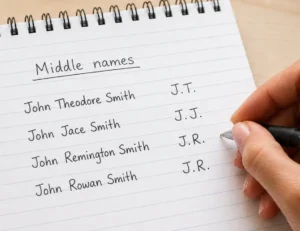 Middle names
John Theodore Smith J.T.
John Jace Smith J.J.
John Remington Smith J.R.
John Rowan Smith J.R.